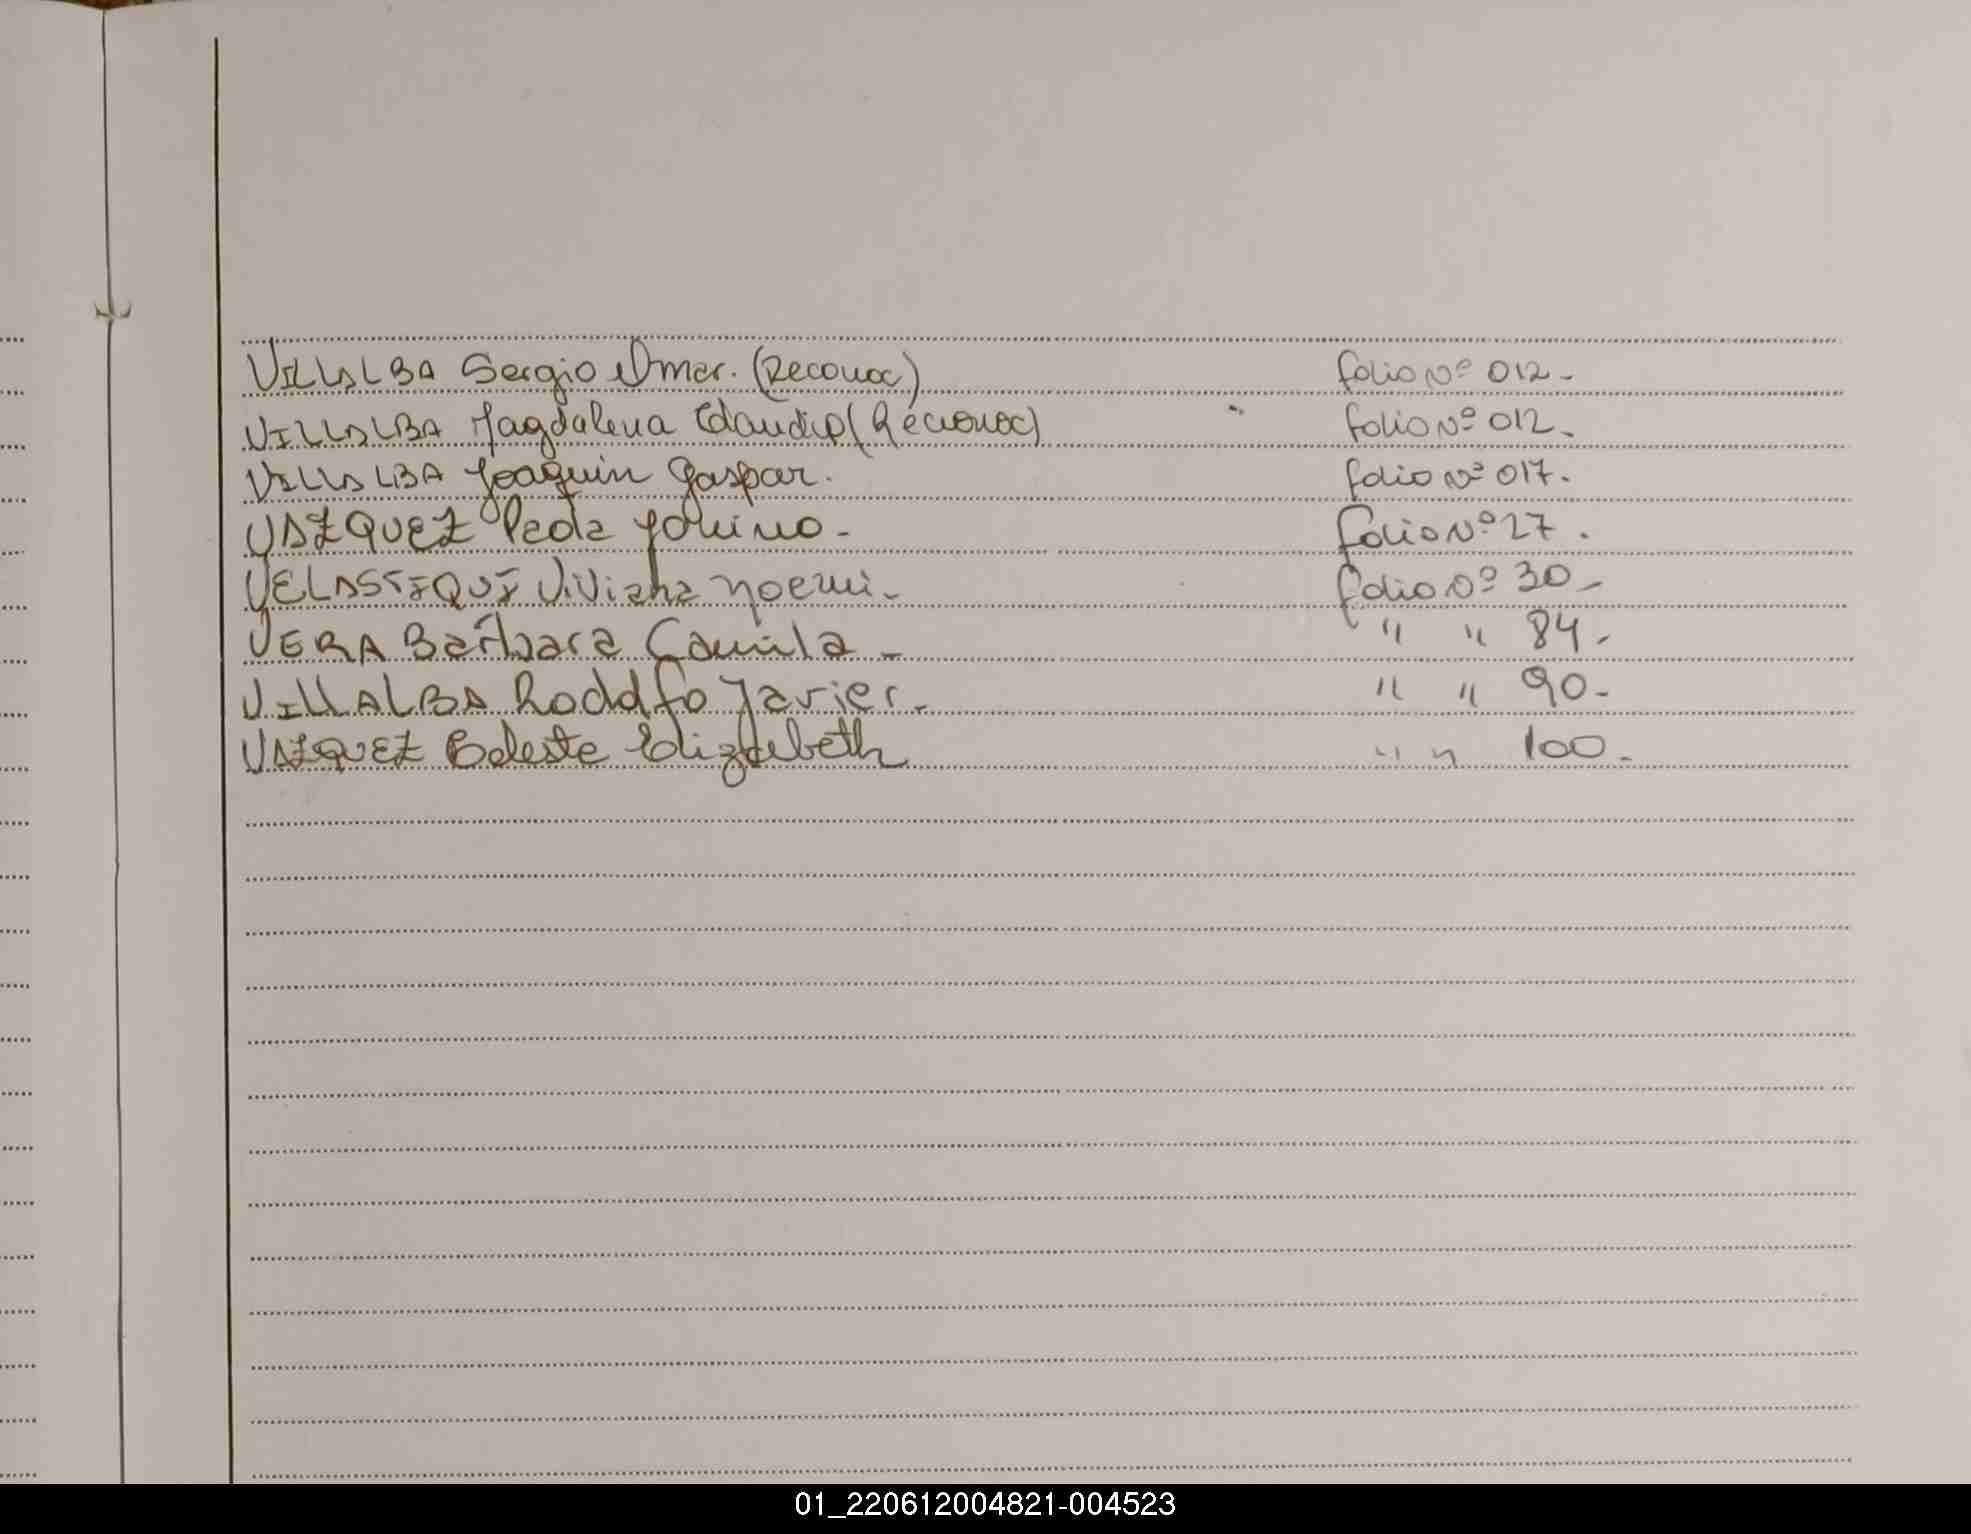 VILLALBA Sergio Omar. (Reconoc) folio Nº 012-
VILLALBA Magdalena Claudia (Reconoc) folio Nº 012-
VILLALBA Joaquin Gaspar. folio Nº 017.
VAZQUEZ folio Nº 27.
Viviana Noemi- folio Nº 30-
VERA Bárbara Camila- " " 84-
VILLALBA Rodolfo Javier- " " 90-
VAZQUEZ Celeste Elizabeth " " 100-
01_220612004821-004523